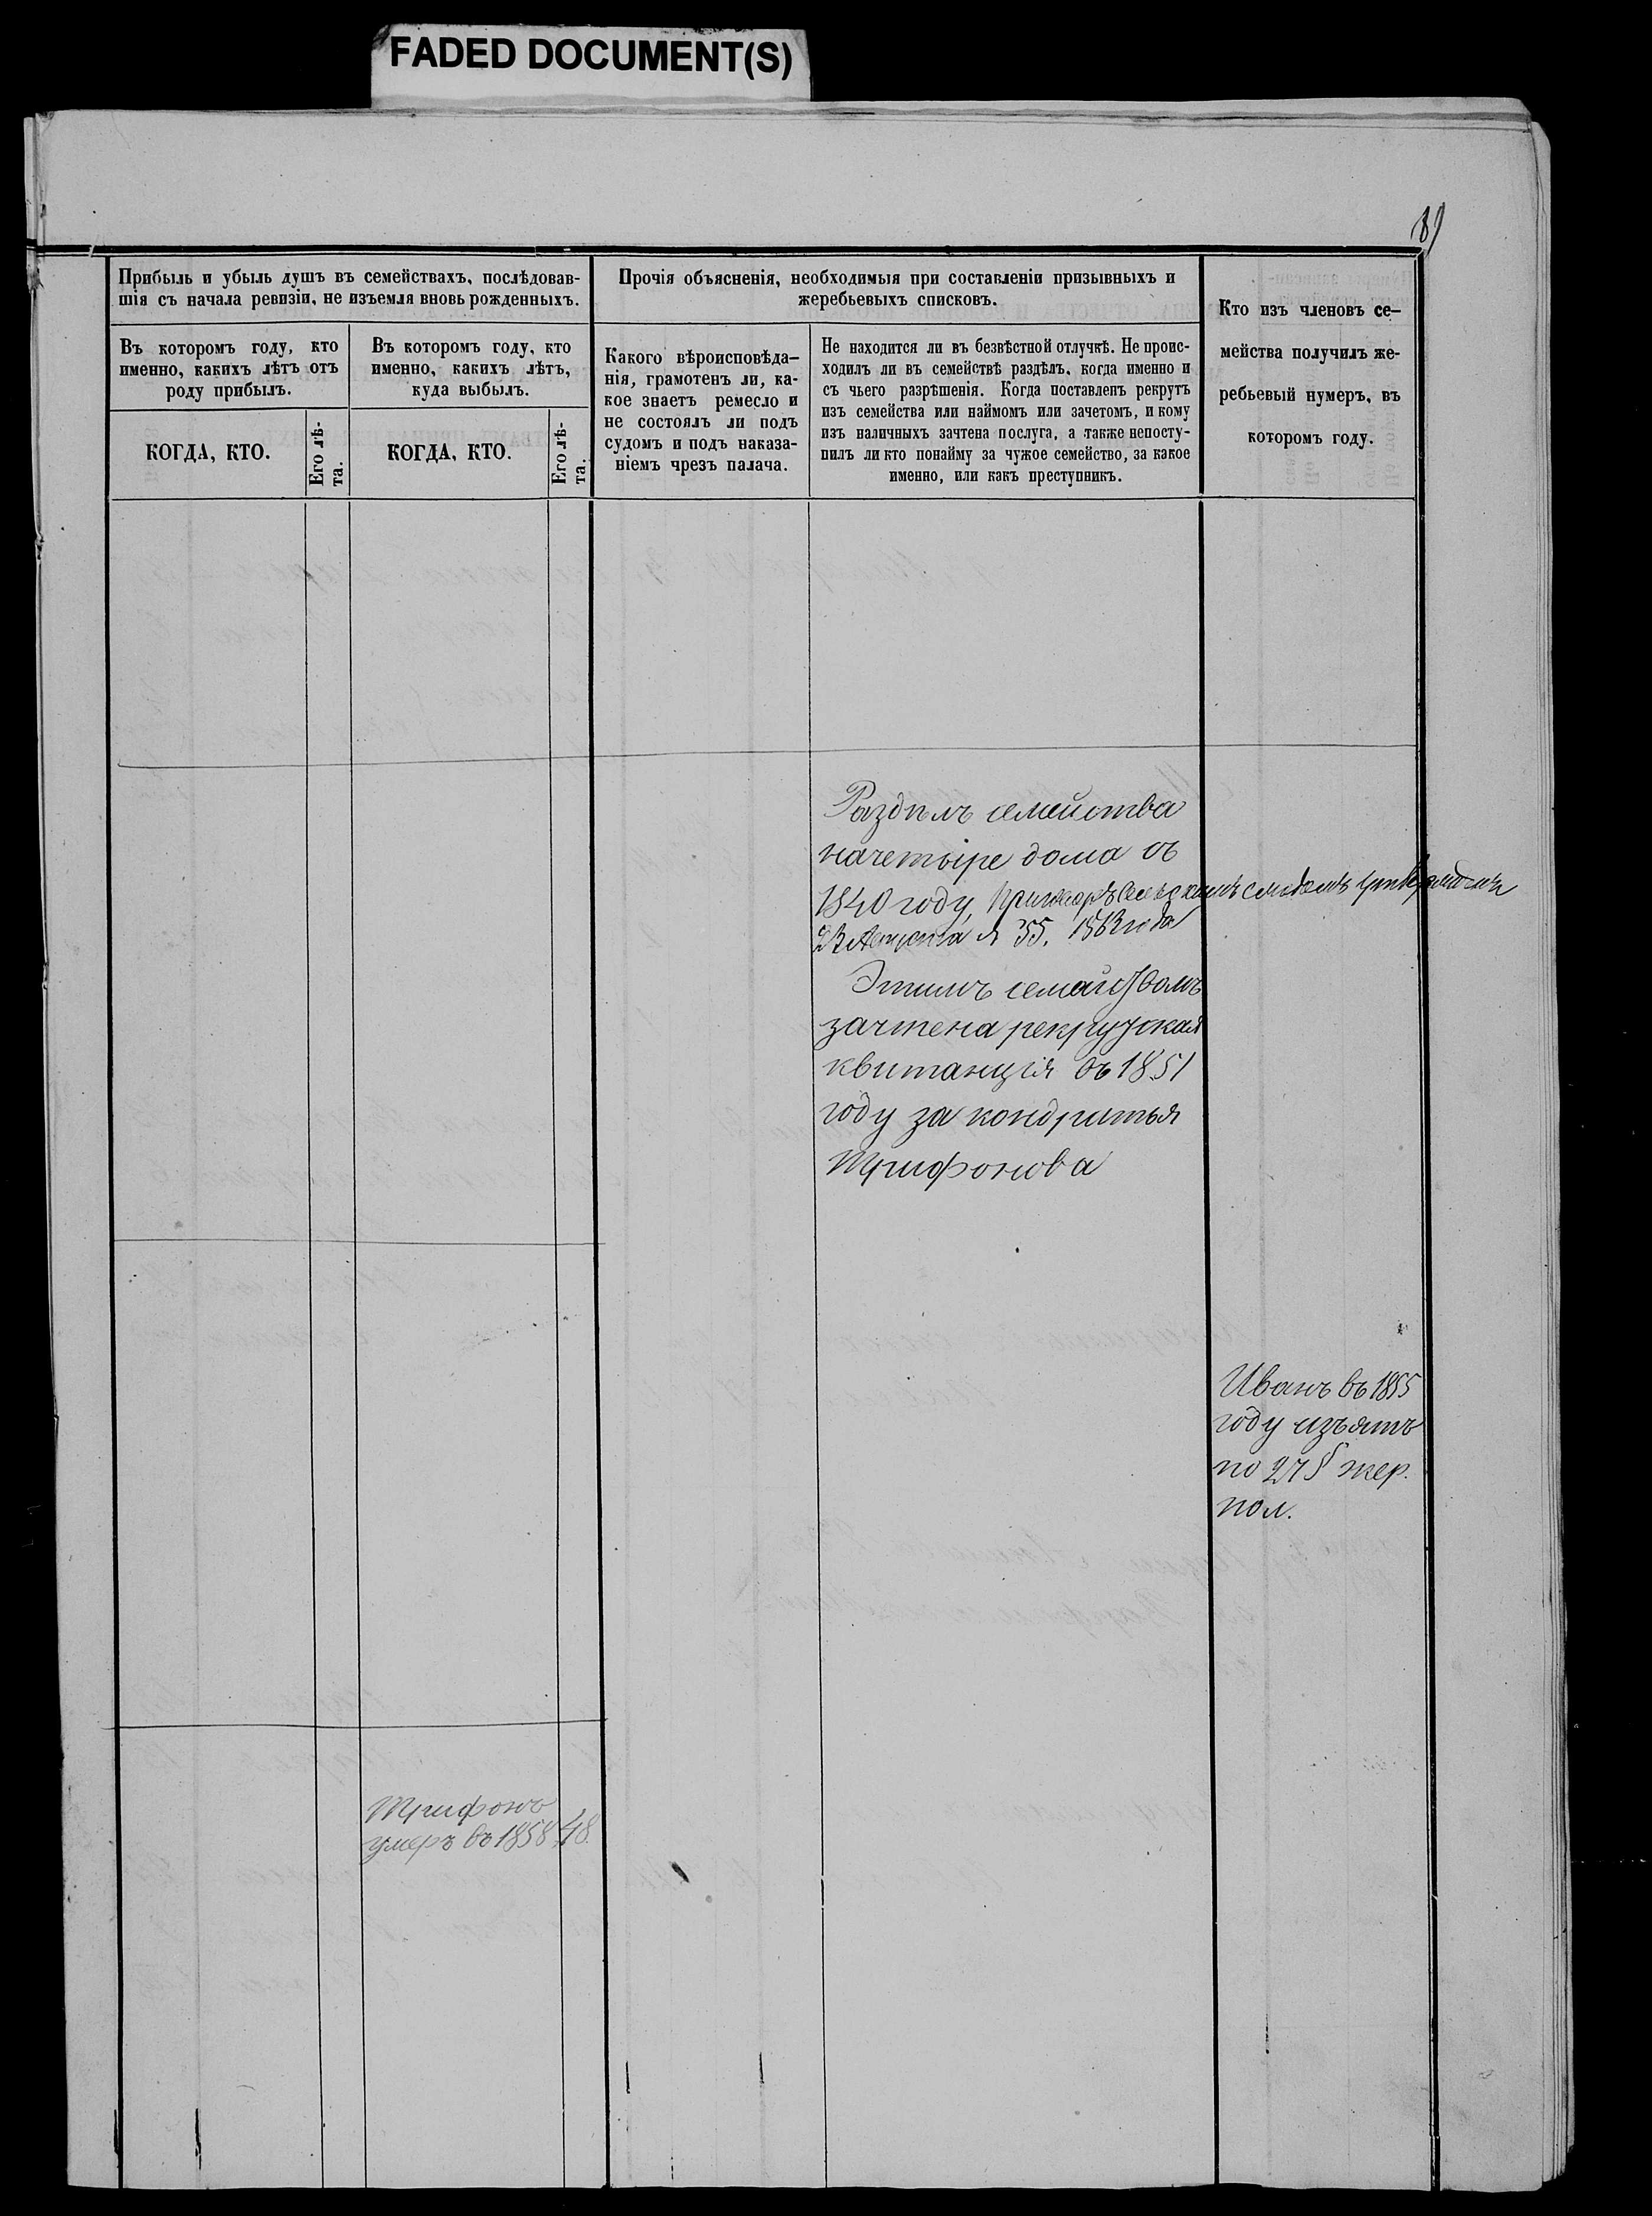 FADED DOCUMENT(S)
Прибыль и убыль душъ въ семействахъ, послѣдовав-
шія съ начала ревизіи, не изъемля вновь рожденныхъ.
Въ которомъ году, кто
именно, какихъ лѣтъ отъ
роду прибылъ.
КОГДА, КТО.
Его лѣ-
та.
Въ которомъ году, кто
именно, какихъ лѣтъ,
куда выбылъ.
КОГДА, КТО.
Его лѣ-
та.
Прочія объясненія, необходимыя при составленіи призывныхъ и
жеребьевыхъ списковъ.
Какого вѣроисповѣда-
нія, грамотенъ ли, ка-
кое знаетъ ремесло и
не состоялъ ли подъ
судомъ и подъ наказа-
ніемъ чрезъ палача.
Не находится ли въ безвѣстной отлучкѣ. Не проис-
ходилъ ли въ семействѣ раздѣлъ, когда именно и
съ чьего разрѣшенія. Когда поставленъ рекрутъ
изъ семейства или наймомъ или зачетомъ, и кому
изъ наличныхъ зачтена послуга, а также непосту-
пилъ ли кто понайму за чужое семейство, за какое
именно, или какъ преступникъ.
Кто изъ членовъ се-
мейства получилъ же-
ребьевый нумеръ, въ
которомъ году.
Раздѣлъ семейства
на четыре дома въ
1840 году,
23 Августа 1863 года
Этимъ семействомъ
зачтена рекрутская
квитанція въ 1851
году за кондратья
трифонова
Иванъ въ 1855
году изъятъ
по 27 § жер.
пол.
Трифонъ
умеръ въ 1858 48.